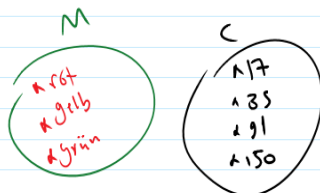 M
C
x rot
x gelb
x grün
x 17
x 35
x 91
x 150